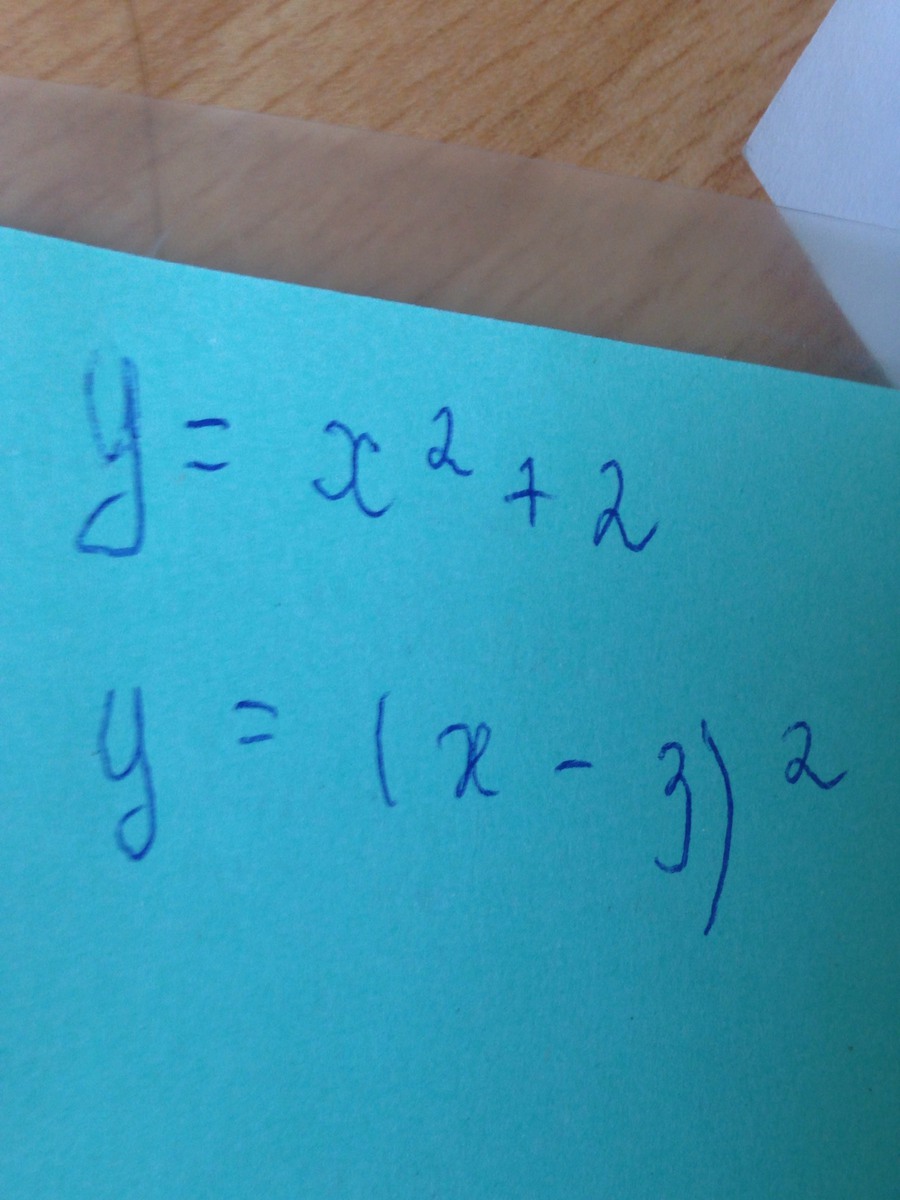 y = x² + 2
y = (x - 3)²